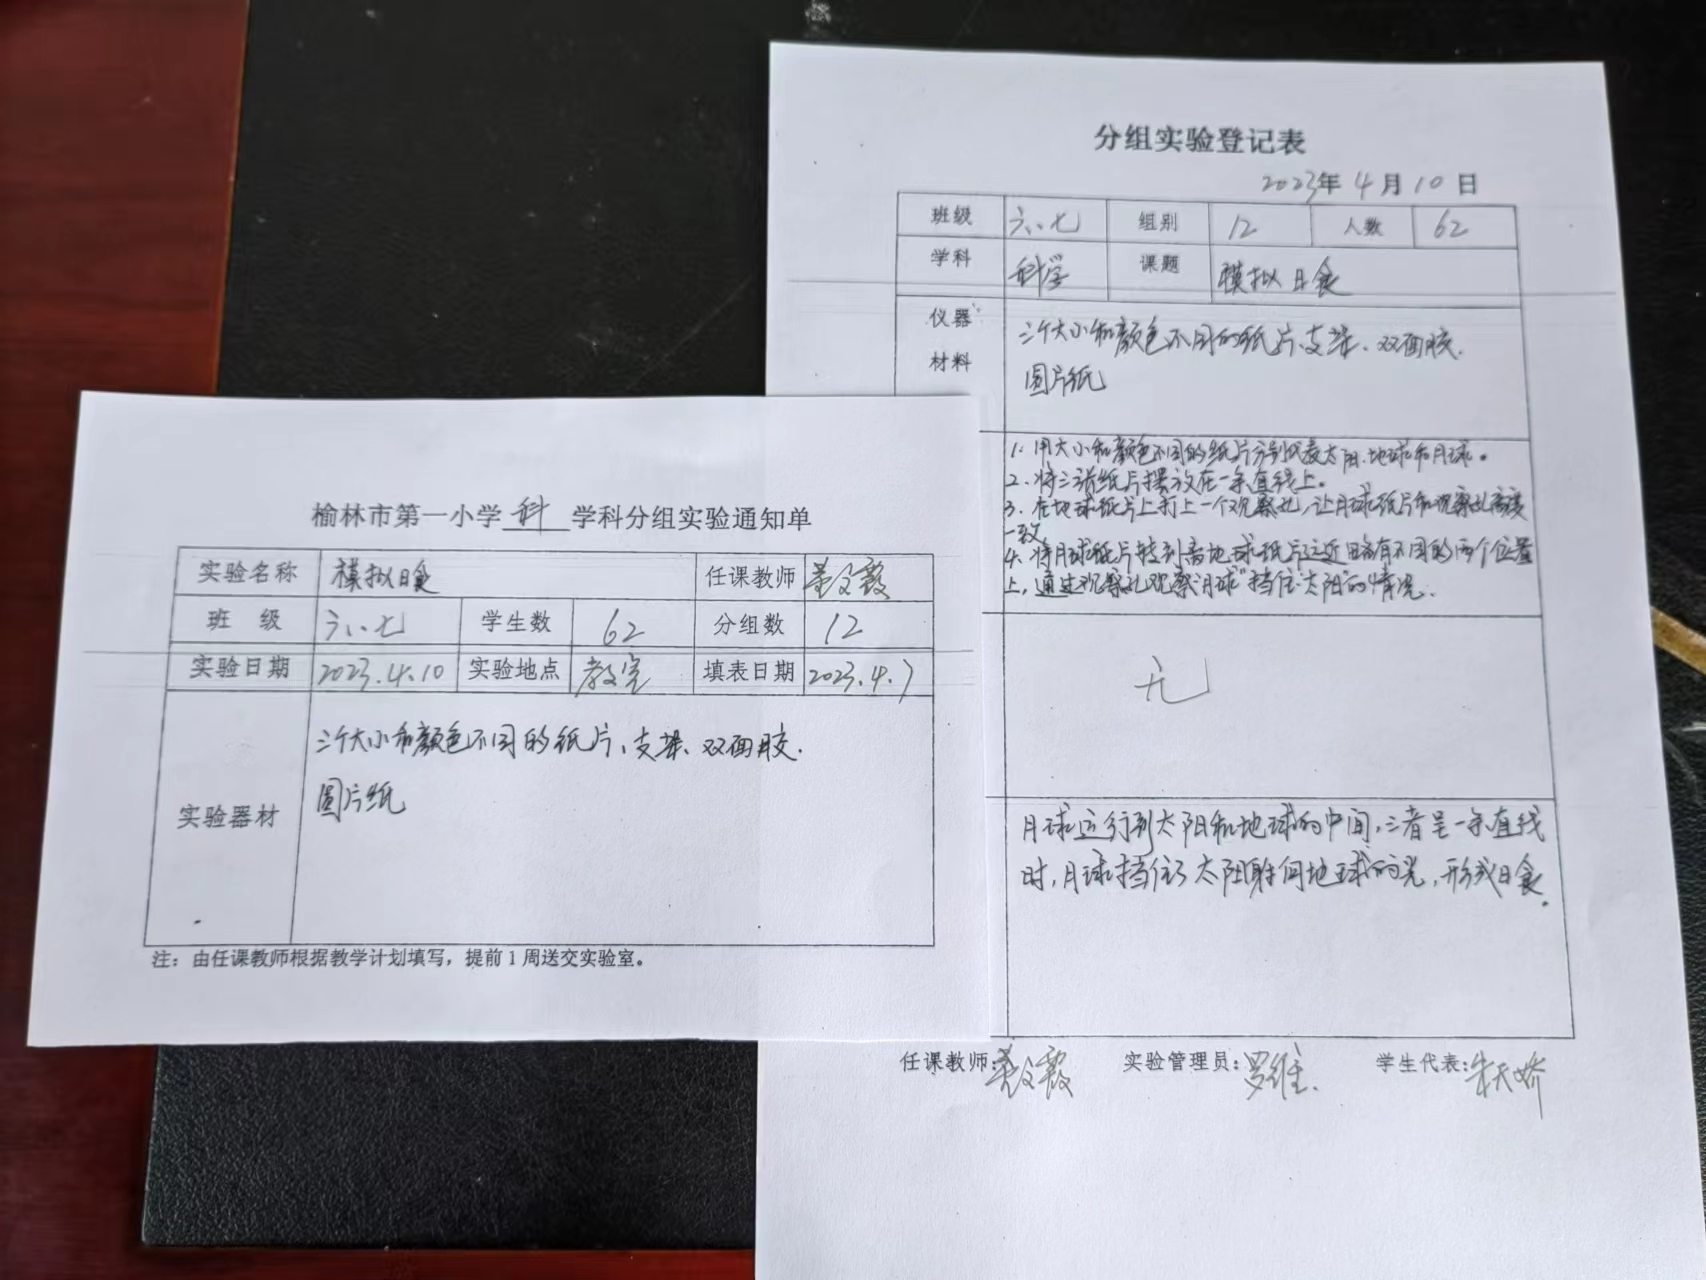 榆林市第一小学 科 学科分组实验通知单
实验名称 模拟日食 任课教师
班 级 六、七 学生数 62 分组数 12
实验日期 2023.4.10 实验地点 教室 填表日期 2023.4.7
实验器材
三个大小和颜色不同的纸片、支架、双面胶.
圆片纸
注：由任课教师根据教学计划填写，提前1周送交实验室。
分组实验登记表
2023年 4月 10日
班级 六、七 组别 12 人数 62
学科 科学 课题 模拟日食
仪器
材料
三个大小和颜色不同的纸片、支架、双面胶.
圆片纸
1. 用大小和颜色不同的纸片分别代表太阳、地球和月球。
2、将三张纸片摆放在一条直线上。
3、在地球纸片上打上一个观察孔，让月球纸片和观察孔高度
一致
4、将月球纸片转到离地球纸片远近略有不同的两个位置
上，通过观察孔观察“月球”挡住“太阳”的情况.
无
月球运行到太阳和地球的中间，三者呈一条直线
时，月球挡住了太阳射向地球的光，形成日食。
任课教师: 实验管理员:罗维 学生代表:朱天娇